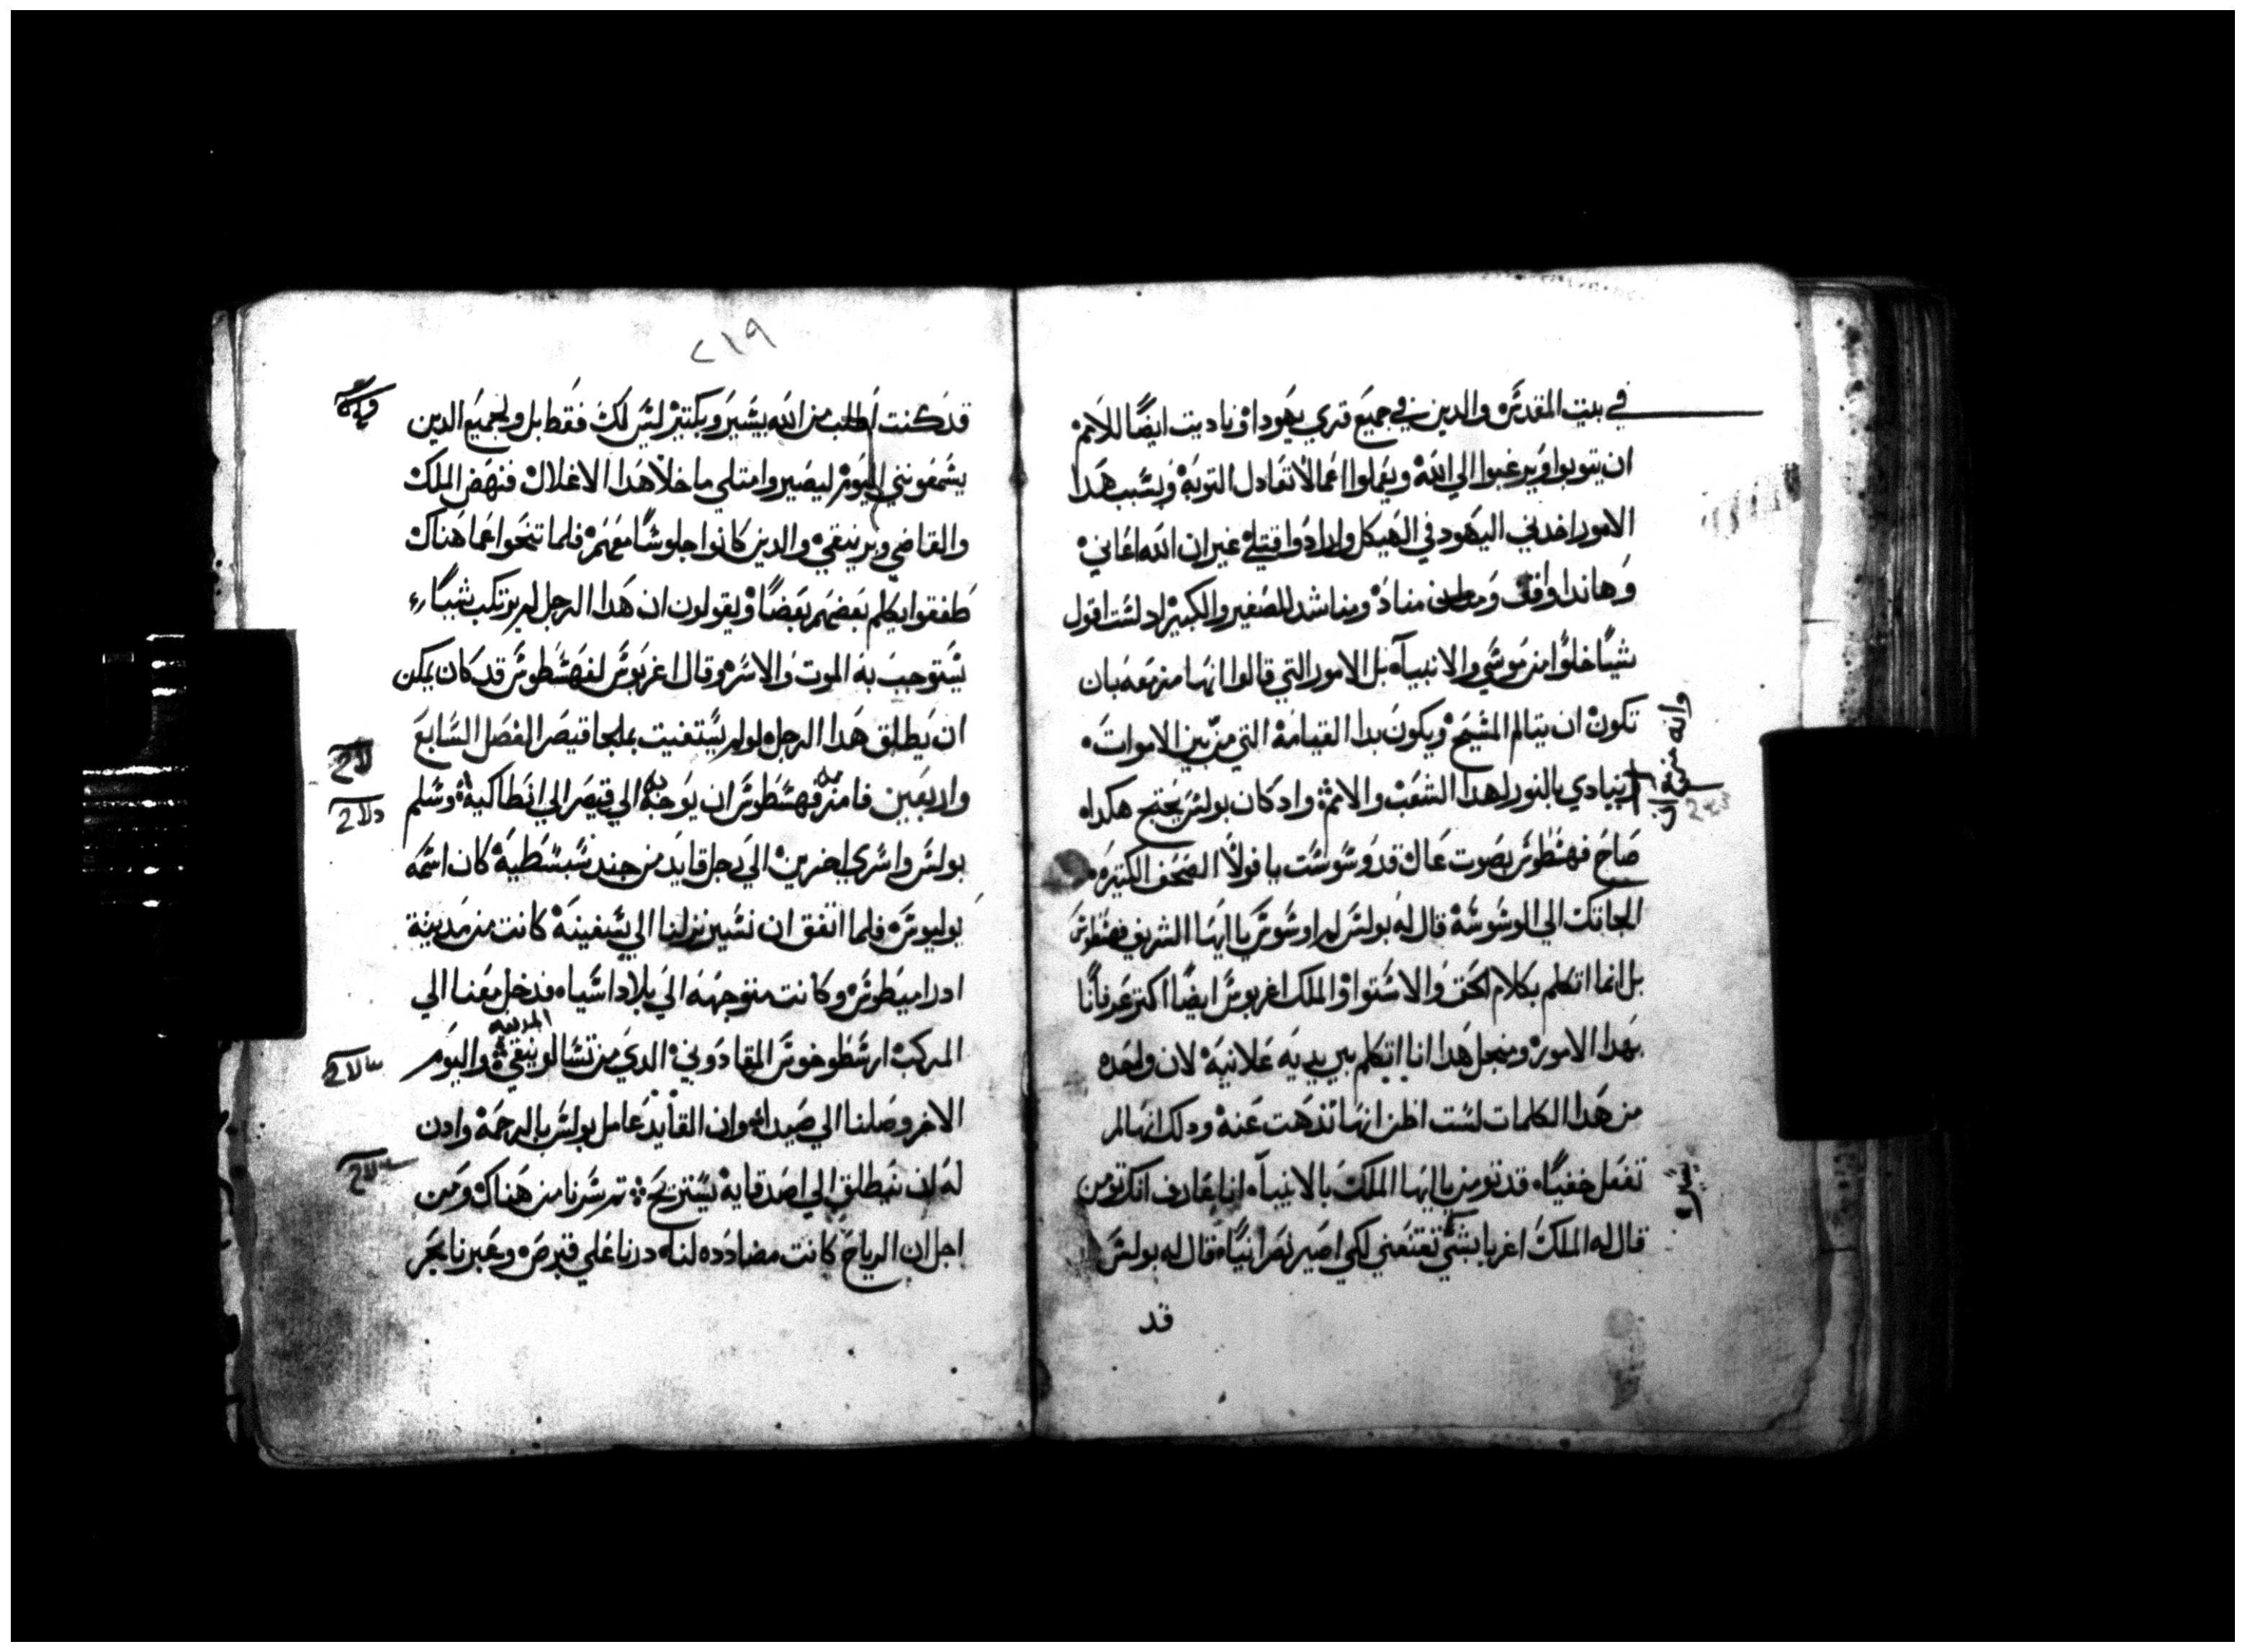 في بيت المقدس والدين في جميع قري يهودا وناديت ايضًا للامم
ان يتوبوا ويرغبوا الي الله ويعملوا اعمالا تعادل التوبة وبسبب هدا
الامور اخدني اليهود في الهيكل وارادوا قتلي غير ان الله اعانني
وهاندا واقف ومناد ومناشد للصغير والكبير اد لست اقول
شيًا خلوًا من موسي والانبياء بل الامور التي قالوا انها مزمعه بان
تكون ان يتالم المسيح ويكون بدا القيامة التي من بين الاموات
وانه مزمع ان
ينادي بالنور لهدا الشعب والامم واد كان بولس يحتج هكدا
صاح فهسطوس بصوت عال قد وسوست يا فولا الصحف الكتيره
الجاتك الي الوسوسة قال له بولس لم اوسوس يا ايها الشريف فهسطوس
بل انما اتكلم بكلام الحق والاستوا والملك اغربوس ايضًا اكتر عرفانًا
بهدا الامور ومنجل هدا انا اتكلم بين يديه علانية لان واحده
من هدا الكلمات لست اظن انها تدهب عنه ودلك انها لم
تفعل خفيًا قد تومن يا ايها الملك بالانبياء انا عارف انك تومن
قال له الملك اغربا بشي تقنعني لكي اصير نصرانيًا قال له بولس
قد
٢١٩
قد كنت اطلب من الله بيسير وبكتير ليس لك فقط بل ولجميع الدين
يسمعونني اليوم ليصيروا متلي ما خلا هدا الاغلال فنهض الملك
والقاضي وبرنيقي والدين كانوا جلوسًا معهم فلما تنحوا عما هناك
طفقوا يكلم بعضهم بعضًا ويقولون ان هدا الرجل لم يرتكب شيًا
يستوجب به الموت والاسر وقال اغربوس لفهسطوس قد كان يمكن
ان يطلق هدا الرجل لو لم يستغيت بملجا قيصر الفصل السابع
واربعين فامر فهسطوس ان يوجه به الي قيصر الي انطاكية وسلم
بولس واسري اخرين الي رجل قايد من جند سبسطية كان اسمه
يوليوس فلما اتفق ان نسير نزلنا الي سفينة كانت من مدينة
ادراميطوس وكانت متوجهه الي بلاد اسيا فدخل معنا الي
المركب ارسطوخوس المقادوني الدي من تسالونيقي المدينه واليوم
الاخر وصلنا الي صيدا وان القايد عامل بولس بالرحمة وادن
له ان ينطلق الي اصدقايه يستريح تم سرنا من هناك ومن
اجل ان الرياح كانت مضادده لنا درنا علي قبرص وعبرنا بحر